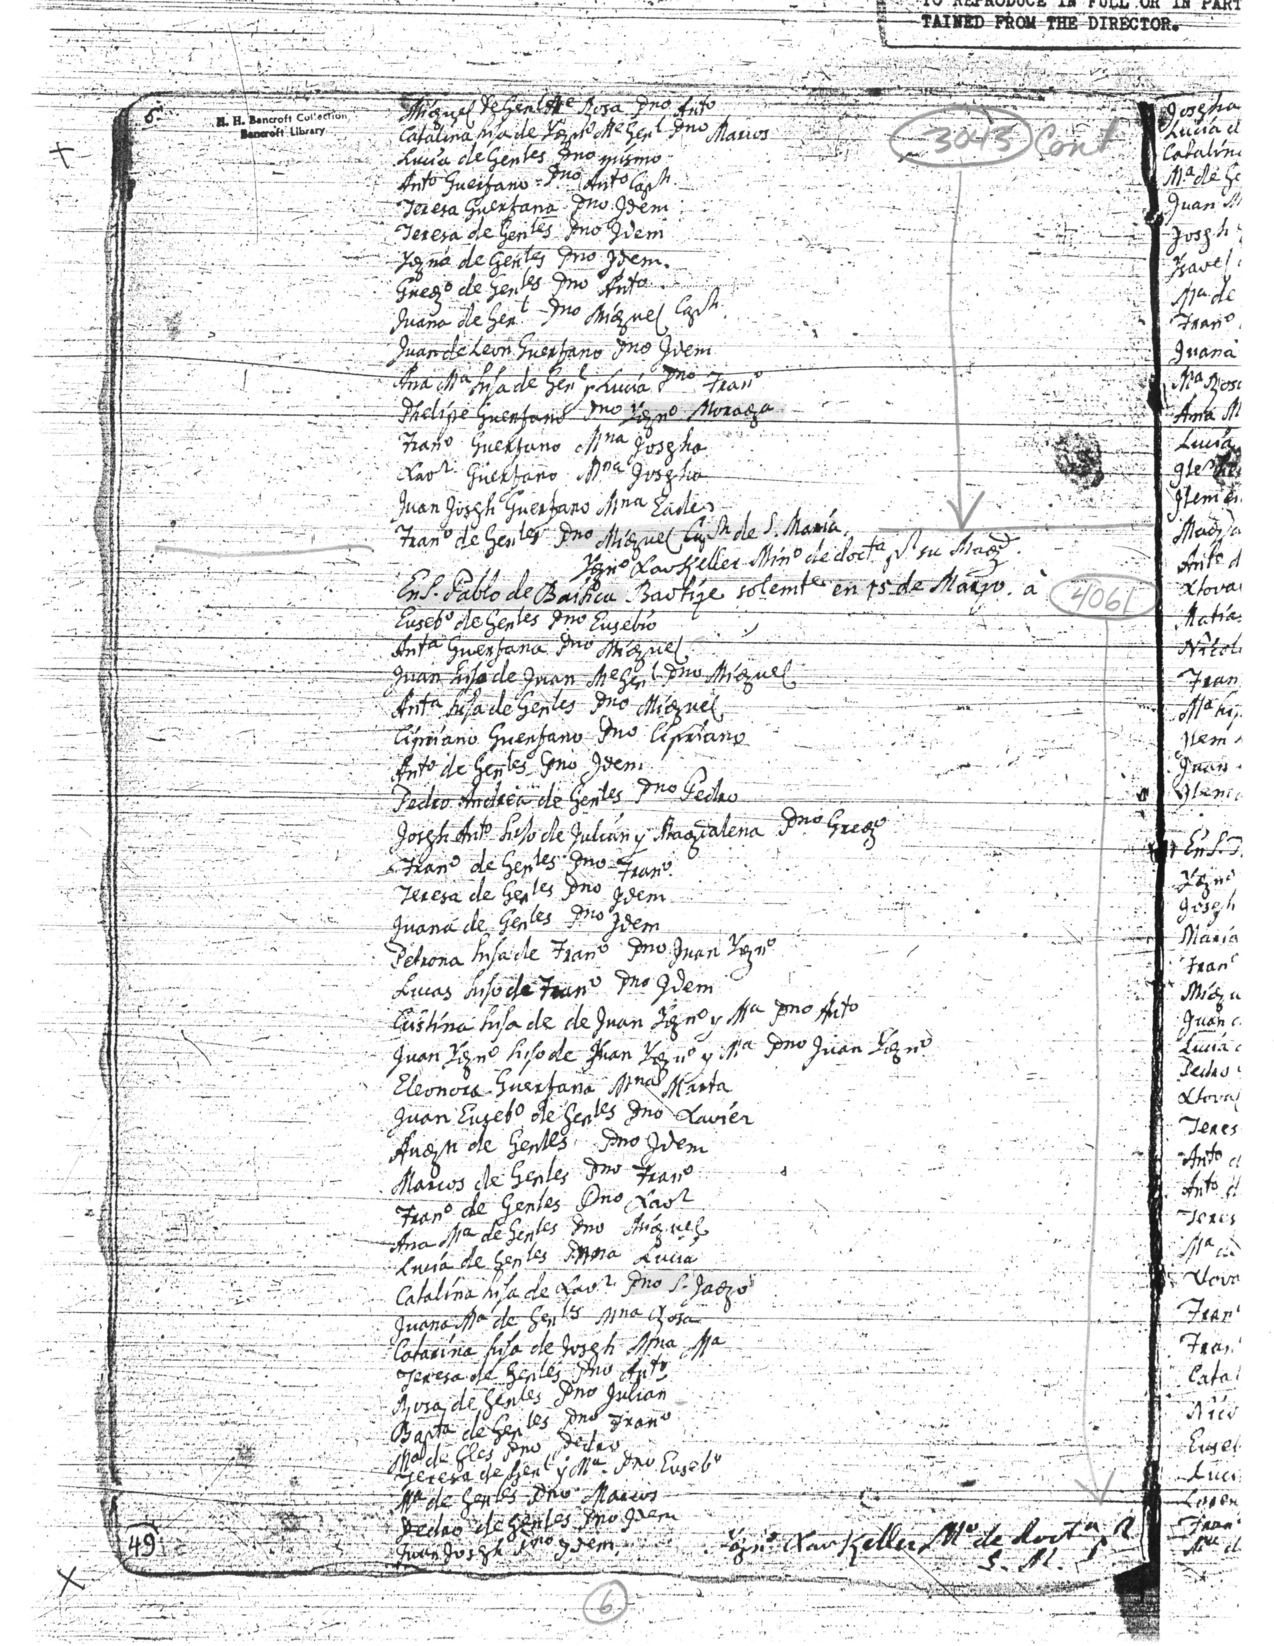 TO REPRODUCE IN FULL OR IN PART
TAINED FROM THE DIRECTOR.
6.
H. H. Bancroft Collection
Bancroft Library
3043 Cont
Miguel de Gentes Rosa Pno Anto
Catalina hija de Ygno Me Gent Pno Marcos
Lucia de Gentes Pno mismo
Anto Guerfano Pno Anto Caph
Teresa Guerfana Pno Jdem
Teresa de Gentes Pno Jdem
Ygna de Gentes Pno Jdem.
Grego de Gentes Pno Anto
Juana de Gent Pno Miguel Caph.
Juan de Leon Guerfano Pno Jdem
Ana Ma hija de Gent y Lucia Pno Frano
Phelipe Guerfano Pno Ygno Moraga
Frano Guerfano Mna Josepha
Xavr Guerfano Mna Josepha
Juan Joseph Guerfano Mna Eade
Frano de Gentes Pno Miguel Caph de S. Maria
Ygno Xav Keller Mino de docta Pr su Magd.
En S. Pablo de Baifica Bautize solemte en 15 de Marzo. à
4061
Eusebo de Gentes Pno Eusebio
Anta Guerfana Pno Miguel
Juan hijo de Juan Me Gent Pno Miguel
Anta hija de Gentes Pno Miguel
Cipriano Guerfano Pno Cipriano
Anto de Gentes Pno Jdem
Pedro Andrea de Gentes Pno Pedro
Joseph Anto hijo de Julian y Magdalena Pno Grego
Frano de Gentes Pno Frano.
Teresa de Gentes Pno Jdem
Juana de Gentes Pno Jdem
Petrona hija de Frano Pno Juan Ygno
Lucas hijo de Frano Pno Jdem
Cristina hija de de Juan Ygno y Ma Pno Anto
Juan Ygno hijo de Juan Ygno y Ma Pno Juan Ygno
Eleonora Guerfana Mna Marta
Juan Eusebo de Gentes Pno Xavier
Augn de Gentes Pno Jdem
Marcos de Gentes Pno Frano
Frano de Gentes Pno Xavr
Ana Ma de Gentes Pno Miguel
Lucia de Gentes Mna Lucia
Catalina hija de Xavr Pno S. Jago
Juana Ma de Gentes Mna Rosa
Catarina hija de Joseph Mna Ma
Teresa de Gentes Pno Anto
Rosa de Gentes Pno Julian
Bapta de Gentes Pno Frano
Ma de Gles Pno Pedro
Teresa de Gent y Ma. Pno Eusebo
Ma de Gentes Pno Marcos
Pedro de Gentes Pno Jdem
Juan Joseph Pno Jdem.
Ygno Xav Keller Mo de docta p R
S. M.
49
6
Josepha
Lucia d
Catalina
Ma de Ge
Juan M
Joseph
Ysavel
Ma de
Frano
Juana
Ma Rosa
Ana M
Lucia
Anto d
Xtova
Matias
Nicol
Fran
Ma hij
Jtem
Juan
En S.
Ygno
Joseph
Maria
Fran
Migu
Juan
Lucia
Pedro
Xtova
Teres
Anto d
Anto d
Teres
Ma
Xtova
Fran
Fran
Cata
Nico
Euse
Luci
Loren
Fran